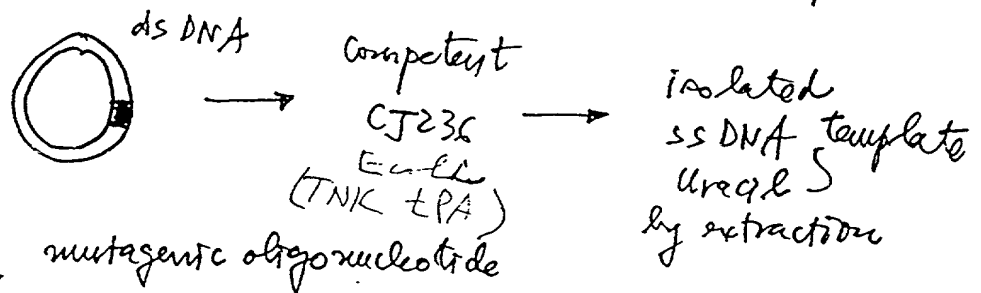 ds DNA
Competent
CJ236
E. coli
(TNK tPA)
isolated
ssDNA template
Uracil
by extraction
mutagenic oligonucleotide